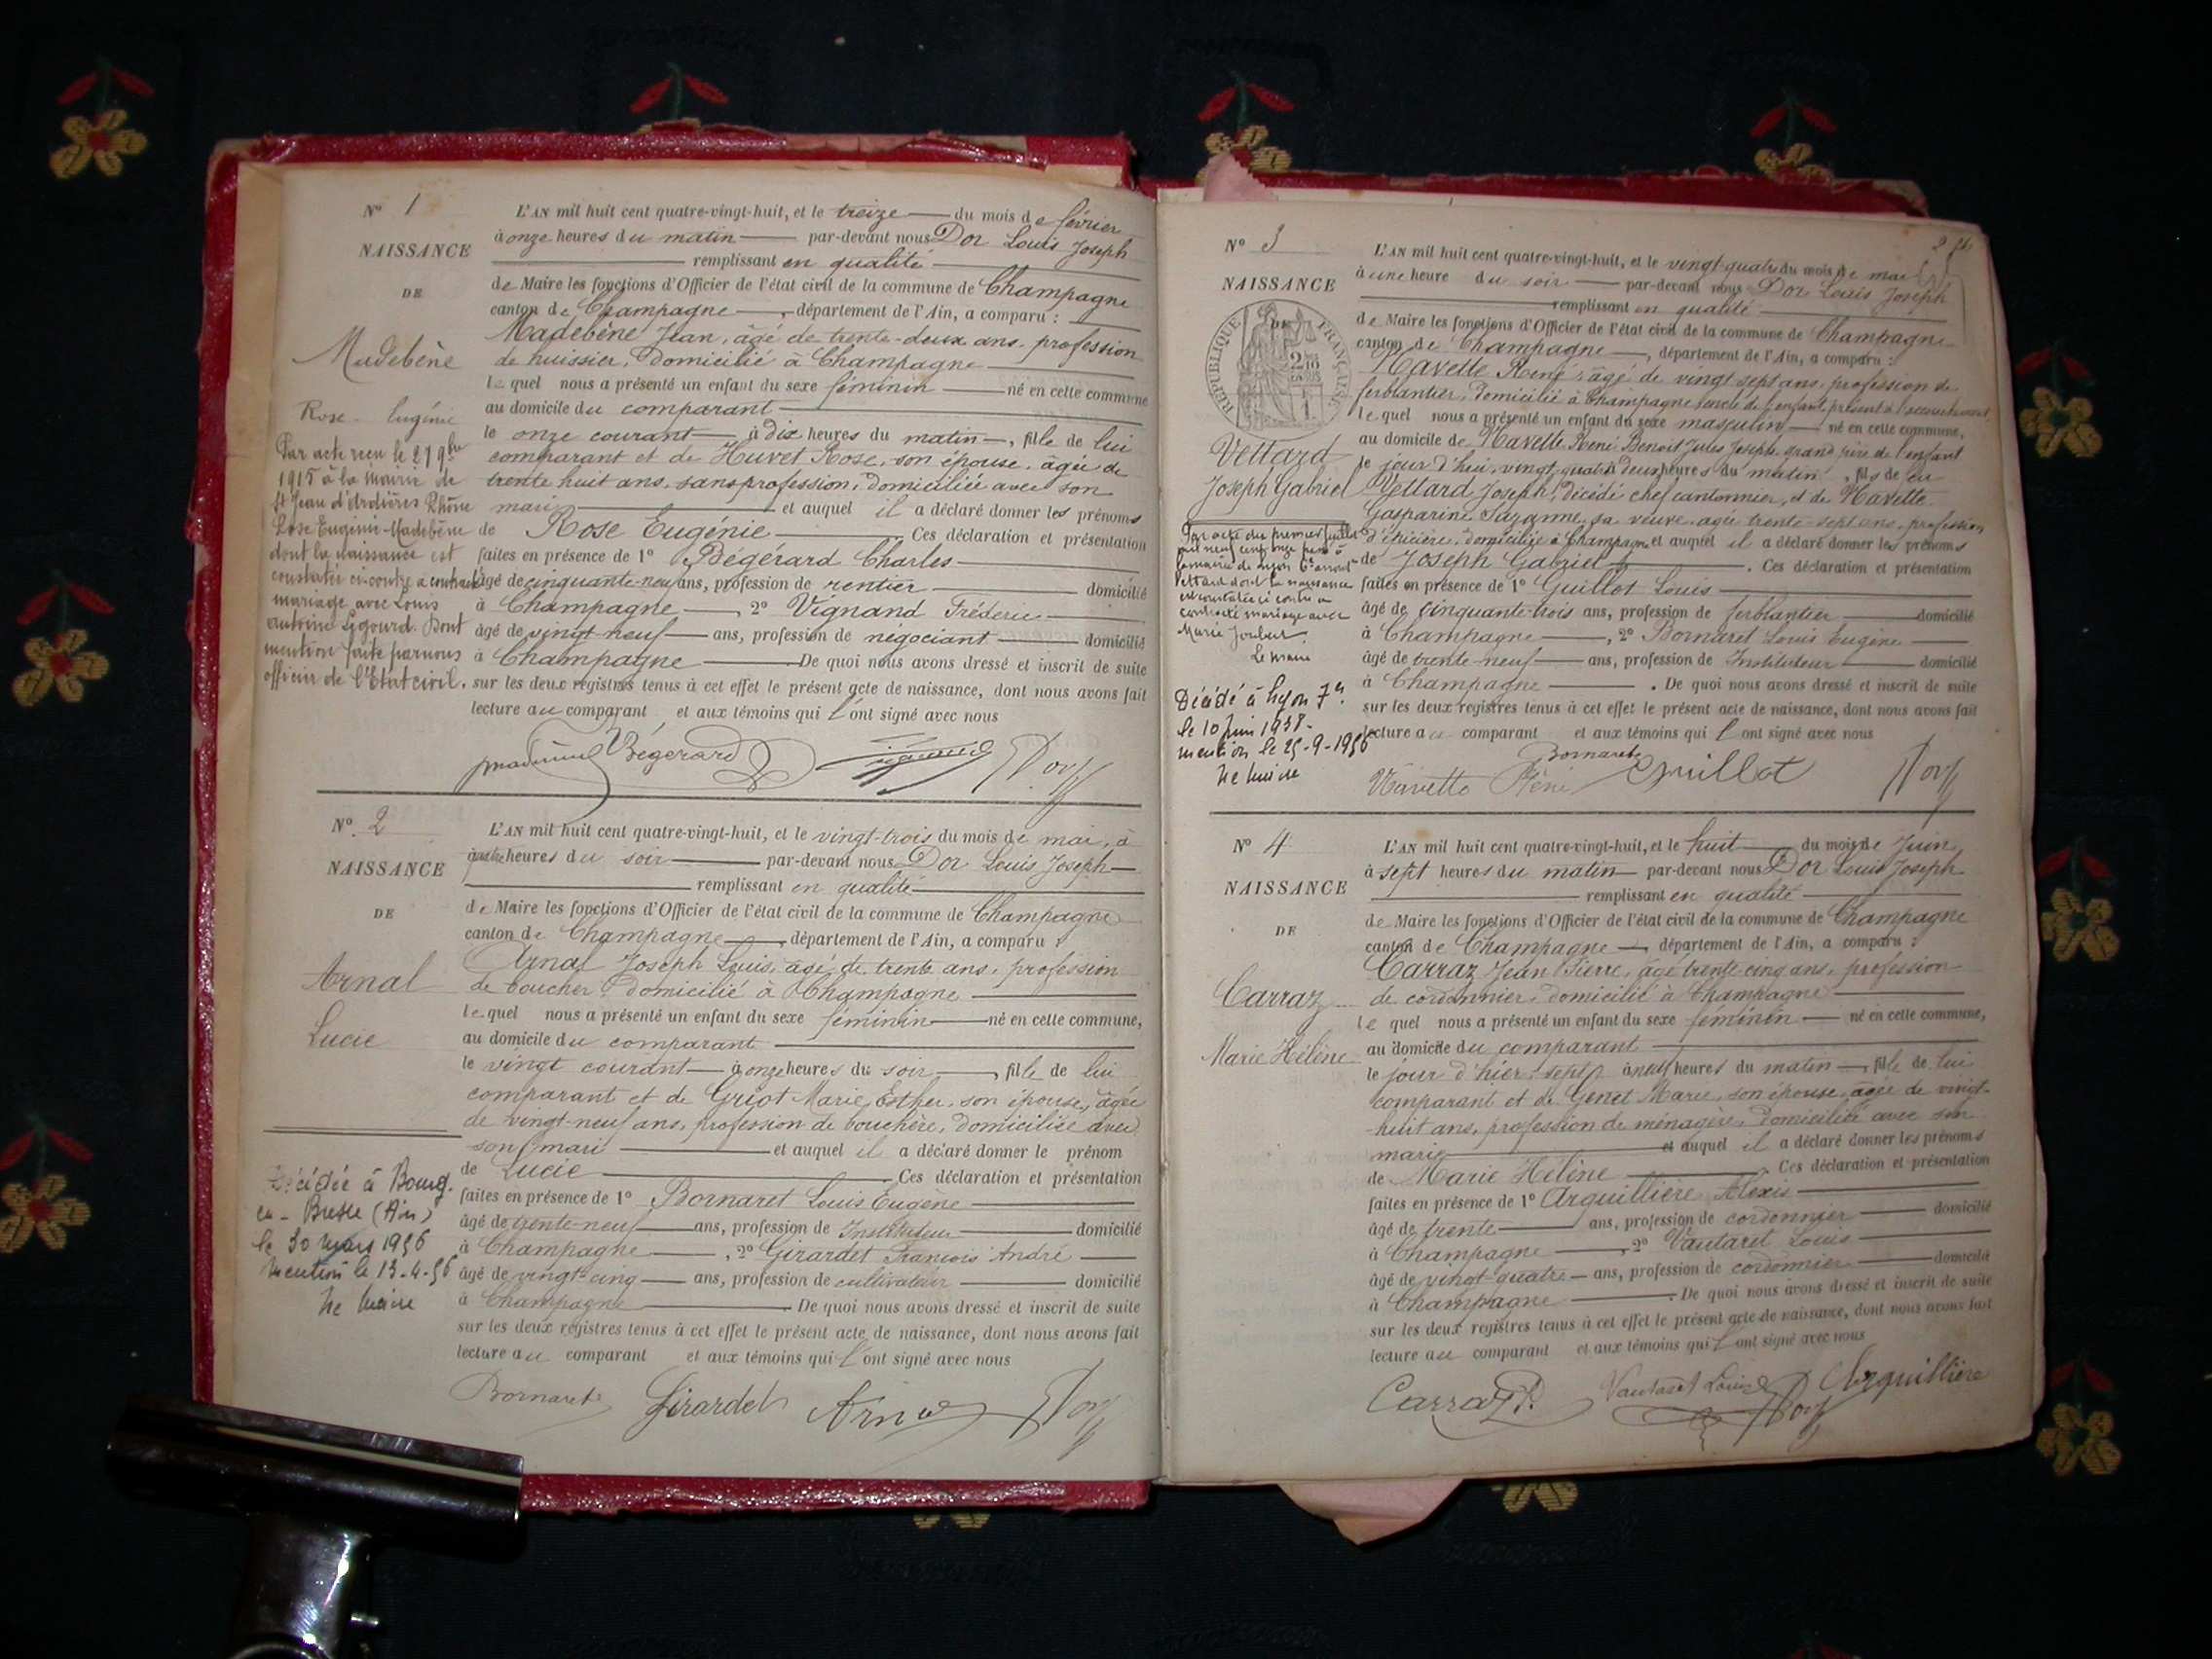 N° 1
NAISSANCE
DE
Madebène
Rose Eugénie
Par acte reçu le 27 9bre
1915 à la mairie de
St Jean d'Ardières Rhône
Rose Eugénie Madebène
dont la naissance est
constatée ci-contre a contracté
mariage avec Louis
Antoine Ligourd. Dont
mention faite par nous
officier de l'Etat civil.
L'AN mil huit cent quatre-vingt-huit, et le treize du mois de février
à onze heures du matin par-devant nous Dor Louis Joseph
remplissant en qualité
de Maire les fonctions d'Officier de l'état civil de la commune de Champagne
canton de Champagne, département de l'Ain, a comparu :
Madebène Jean, âgé de trente-deux ans, profession
de huissier, domicilié à Champagne
lequel nous a présenté un enfant du sexe féminin né en cette commune
au domicile du comparant
le onze courant à dix heures du matin, fille de lui
comparant et de Huvet Rose, son épouse, âgée de
trente huit ans, sans profession, domiciliée avec son
mari et auquel il a déclaré donner les prénoms
de Rose Eugénie Ces déclaration et présentation
faites en présence de 1° Bégérard Charles
âgé de cinquante-neuf ans, profession de rentier domicilié
à Champagne, 2° Vignand Fréderic
âgé de vingt-neuf ans, profession de négociant domicilié
à Champagne De quoi nous avons dressé et inscrit de suite
sur les deux registres tenus à cet effet le présent acte de naissance, dont nous avons fait
lecture au comparant et aux témoins qui l'ont signé avec nous
Bégérard Dor
N° 2
NAISSANCE
DE
Arnal
Lucie
Décédée à Bourg-
en-Bresse (Ain)
le 30 mars 1956
Mention le 13-4-56
Le Maire
L'AN mil huit cent quatre-vingt-huit, et le vingt-trois du mois de mai, à
quatre heures du soir par-devant nous Dor Louis Joseph
remplissant en qualité
de Maire les fonctions d'Officier de l'état civil de la commune de Champagne
canton de Champagne, département de l'Ain, a comparu :
Arnal Joseph Louis, âgé de trente ans, profession
de boucher, domicilié à Champagne
lequel nous a présenté un enfant du sexe féminin né en cette commune,
au domicile du comparant
le vingt courant à onze heures du soir, fille de lui
comparant et de Griot Marie Esther, son épouse, âgée
de vingt-neuf ans, profession de bouchère, domiciliée avec
son mari et auquel il a déclaré donner le prénom
de Lucie Ces déclaration et présentation
faites en présence de 1° Bornaret Louis Eugène
âgé de trente-neuf ans, profession de Instituteur domicilié
à Champagne, 2° Girardet François André
âgé de vingt-cinq ans, profession de cultivateur domicilié
à Champagne De quoi nous avons dressé et inscrit de suite
sur les deux registres tenus à cet effet le présent acte de naissance, dont nous avons fait
lecture au comparant et aux témoins qui l'ont signé avec nous
Bornaret Girardet Arnal Dor
N° 3
NAISSANCE
DE
RÉPUBLIQUE FRANÇAISE
Vettard
Joseph Gabriel
Par acte du premier juillet
mil neuf cent onze
Vettard dont la naissance
est constatée ci contre a
contracté mariage avec
Marie Joubert
Le maire
Décédé à Lyon 7e
le 10 juin 1938-
mention le 25-9-1956
Le Maire
L'AN mil huit cent quatre-vingt-huit, et le vingt-quatre du mois de mai
à une heure du soir par-devant nous Dor Louis Joseph
remplissant en qualité
de Maire les fonctions d'Officier de l'état civil de la commune de Champagne
canton de Champagne, département de l'Ain, a comparu :
Navette René, âgé de vingt sept ans, profession de
ferblantier, domicilié à Champagne, oncle de l'enfant, présent à l'accouchement
lequel nous a présenté un enfant du sexe masculin né en cette commune,
au domicile de Navette René Benoit Jules Joseph, grand père de l'enfant
le jour d'hui, vingt quatre à deux heures du matin, fils de feu
Vettard Joseph, décédé chef cantonnier, et de Navette
Gasparine Suzanne, sa veuve, agée trente-sept ans, profession
d'épicière, domiciliée à Champagne et auquel il a déclaré donner les prénoms
de Joseph Gabriel. Ces déclaration et présentation
faites en présence de 1° Guillot Louis
âgé de cinquante-trois ans, profession de ferblantier domicilié
à Champagne, 2° Bornaret Louis Eugène
âgé de trente-neuf ans, profession de Instituteur domicilié
à Champagne. De quoi nous avons dressé et inscrit de suite
sur les deux registres tenus à cet effet le présent acte de naissance, dont nous avons fait
lecture au comparant et aux témoins qui l'ont signé avec nous
Bornaret
Navette Réné Guillot Dor
N° 4
NAISSANCE
DE
Carraz
Marie Hélène
L'AN mil huit cent quatre-vingt-huit, et le huit du mois de Juin
à sept heures du matin par-devant nous Dor Louis Joseph
remplissant en qualité
de Maire les fonctions d'Officier de l'état civil de la commune de Champagne
canton de Champagne, département de l'Ain, a comparu :
Carraz Jean Pierre, âgé trente cinq ans, profession
de cordonnier, domicilié à Champagne
lequel nous a présenté un enfant du sexe féminin né en cette commune,
au domicile du comparant
le jour d'hier, sept, à neuf heures du matin, fille de lui
comparant et de Genet Marie, son épouse, âgée de vingt-
huit ans, profession de ménagère, domiciliée avec son
mari et auquel il a déclaré donner les prénoms
de Marie Hélène. Ces déclaration et présentation
faites en présence de 1° Arquillière Alexis
âgé de trente ans, profession de cordonnier domicilié
à Champagne, 2° Vautaret Louis
âgé de vingt-quatre ans, profession de cordonnier domicilié
à Champagne. De quoi nous avons dressé et inscrit de suite
sur les deux registres tenus à cet effet le présent acte de naissance, dont nous avons fait
lecture au comparant et aux témoins qui l'ont signé avec nous
Carraz Vautaret Louis Dor Arquillière